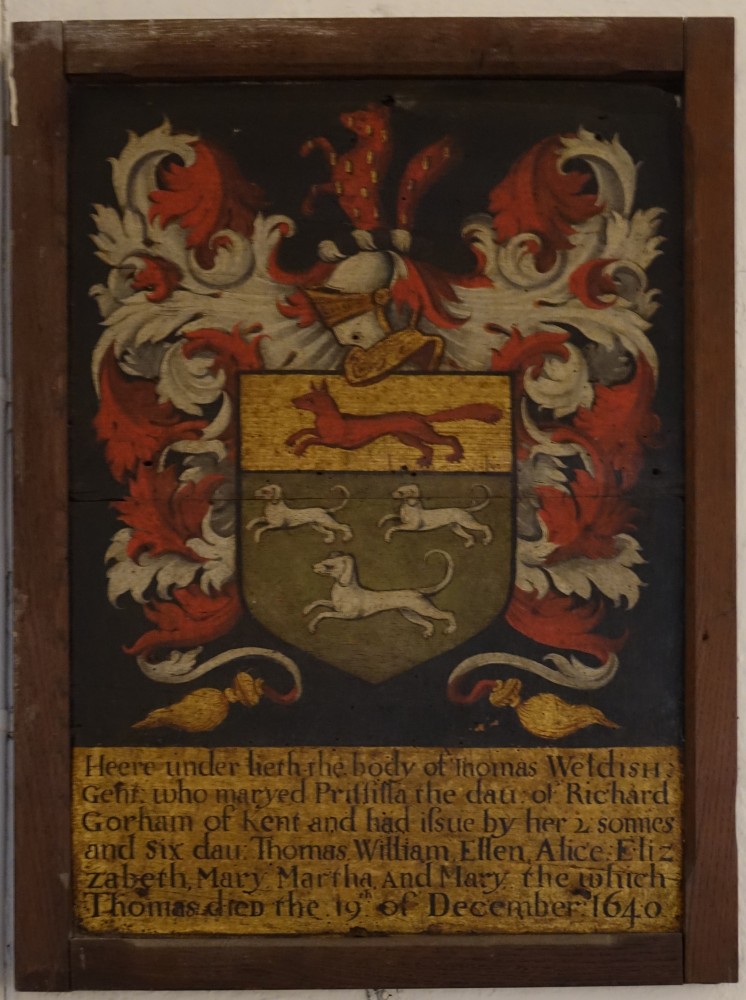 Heere under lieth the body of Thomas Weldish:
Gent. who maryed Prissilla the dau: of Richard
Gorham of Kent and had issue by her 2 sonnes
and six dau: Thomas, William, Ellen, Alice: Eliz
zabeth, Mary. Martha, and Mary. the which
Thomas died the .19th of December: 1640